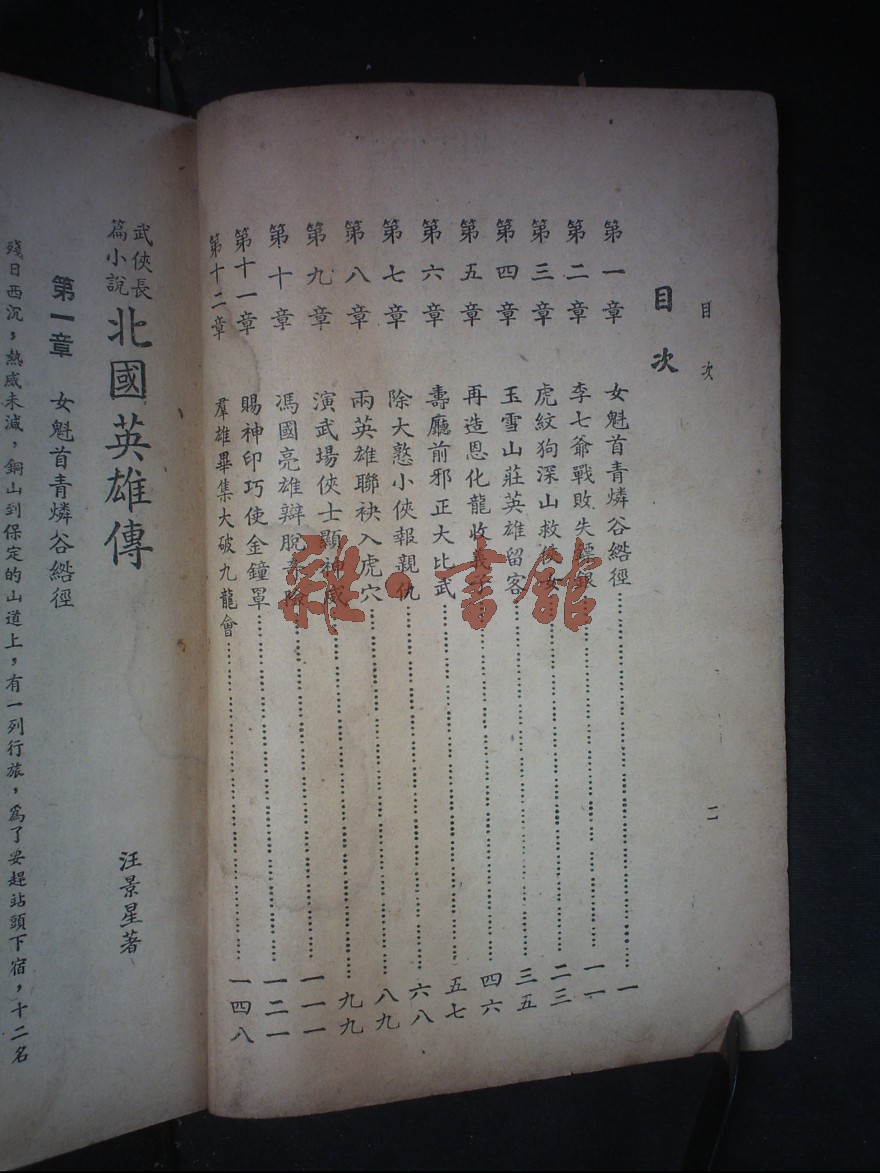 目次
二
目次
第一章 女魁首青燐谷綹徑……一
第二章 李七爺戰敗失鏢銀……一一
第三章 虎紋狗深山救俠女……二三
第四章 玉雪山莊英雄留客……三五
第五章 再造恩化龍收義子……四六
第六章 壽廳前邪正大比武……五七
第七章 除大憝小俠報親仇……六八
第八章 兩英雄聯袂入虎穴……八九
第九章 演武場俠士顯神威……九九
第十章 馮國亮雄辯脫奇險……一一一
第十一章 賜神印巧使金鐘罩……一二一
第十二章 羣雄畢集大破九龍會……一四八
武俠長篇小說 北國英雄傳
汪景星著
第一章 女魁首青燐谷綹徑
殘日西沉，熱威未減，銅山到保定的山道上，有一列行旅，爲了要趕站頭下宿，十二名
雜·書館